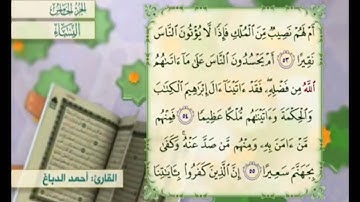 الجزء الخامس
النساء
أَمْ لَهُمْ نَصِيبٌ مِّنَ الْمُلْكِ فَإِذًا لَّا يُؤْتُونَ النَّاسَ
نَقِيرًا ٥٣ أَمْ يَحْسُدُونَ النَّاسَ عَلَىٰ مَا ءَاتَىٰهُمُ
اللَّهُ مِن فَضْلِهِ فَقَدْ ءَاتَيْنَا ءَالَ إِبْرَٰهِيمَ الْكِتَٰبَ
وَالْحِكْمَةَ وَءَاتَيْنَٰهُم مُّلْكًا عَظِيمًا ٥٤ فَمِنْهُم
مَّنْ ءَامَنَ بِهِ وَمِنْهُم مَّن صَدَّ عَنْهُ وَكَفَىٰ
بِجَهَنَّمَ سَعِيرًا ٥٥ إِنَّ الَّذِينَ كَفَرُوا بِـَٔايَٰتِنَا
القارئ: أحمد الدباغ